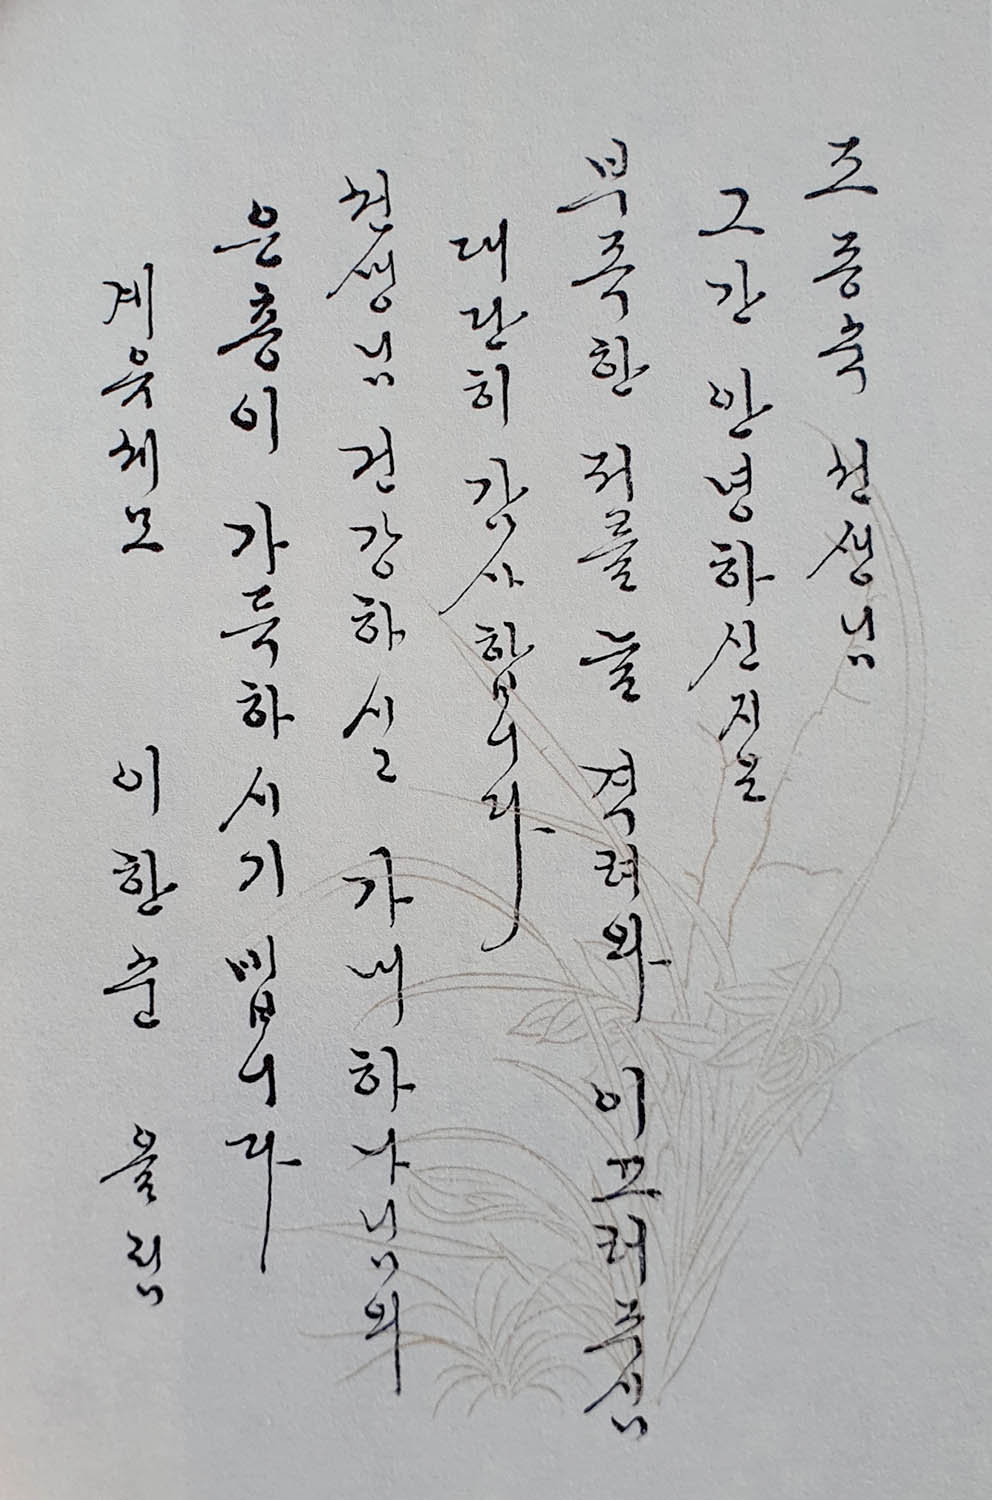 조종숙 선생님
그간 안녕하신지요
부족한 저를 늘 격려와 이끄러주심
대단히 감사합니다
선생님 건강하실 가내 하나님의
은총이 가득하시기 빕니다
계유세모 이한순 올림